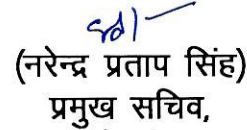 sd/-
(नरेन्द्र प्रताप सिंह)
प्रमुख सचिव,